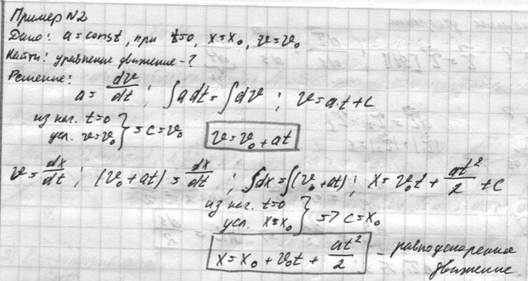 Пример N2
Дано: a = const, при t=0, x=x₀, v=v₀
Найти: уравнение движение - ?
Решение:
a = dv/dt ; ∫a dt = ∫dv ; v = at + c
из нач. t=0
усл. v=v₀ } => c = v₀ v = v₀ + at
v = dx/dt ; (v₀ + at) = dx/dt ; ∫dx = ∫(v₀ + at) ; x = v₀t + at²/2 + c
из нач. t=0
усл. x=x₀ } => c = x₀
x = x₀ + v₀t + at²/2 - равноускоренное
движение